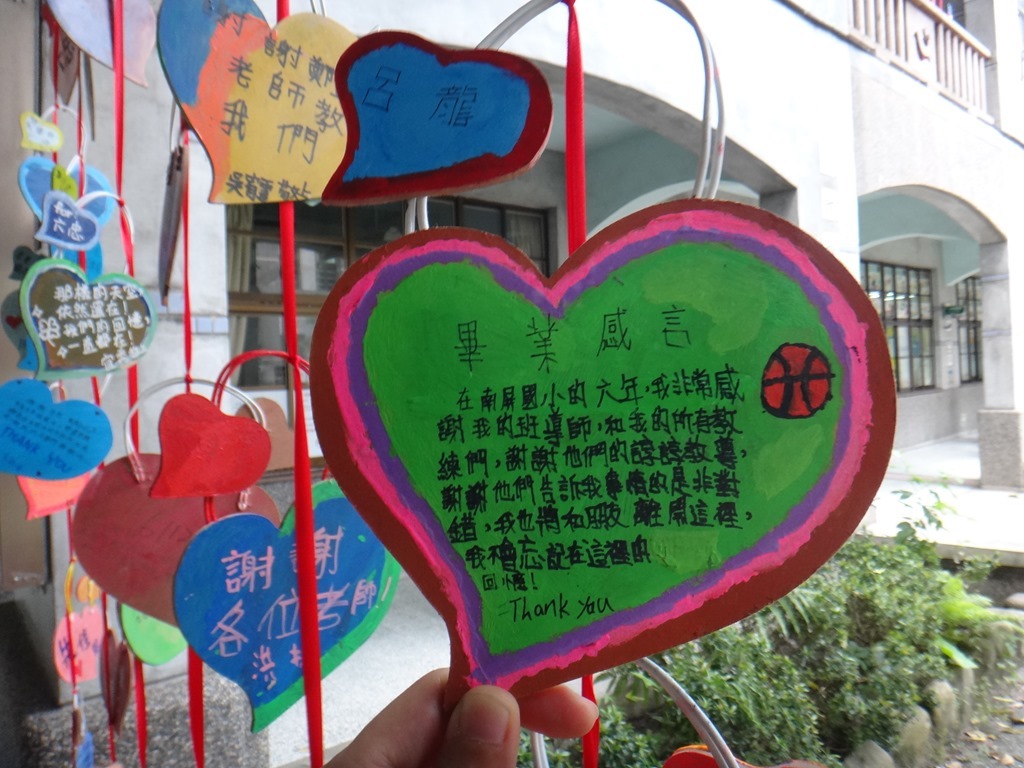 謝謝鄭
老師教
我們
呂龍
for
六忠
那樣的天空
依然還在
我們的回憶
一直都在!
THANK YOU
謝謝
各位老師!
畢業感言
在南屏國小的六年,我非常感
謝我的班導師,和我的所有教
練們,謝謝他們的諄諄教導,
謝謝他們告訴我事情的是非對
錯,我也將和朋友離開這裡,
我不會忘記在這裡的
回憶!
Thank you